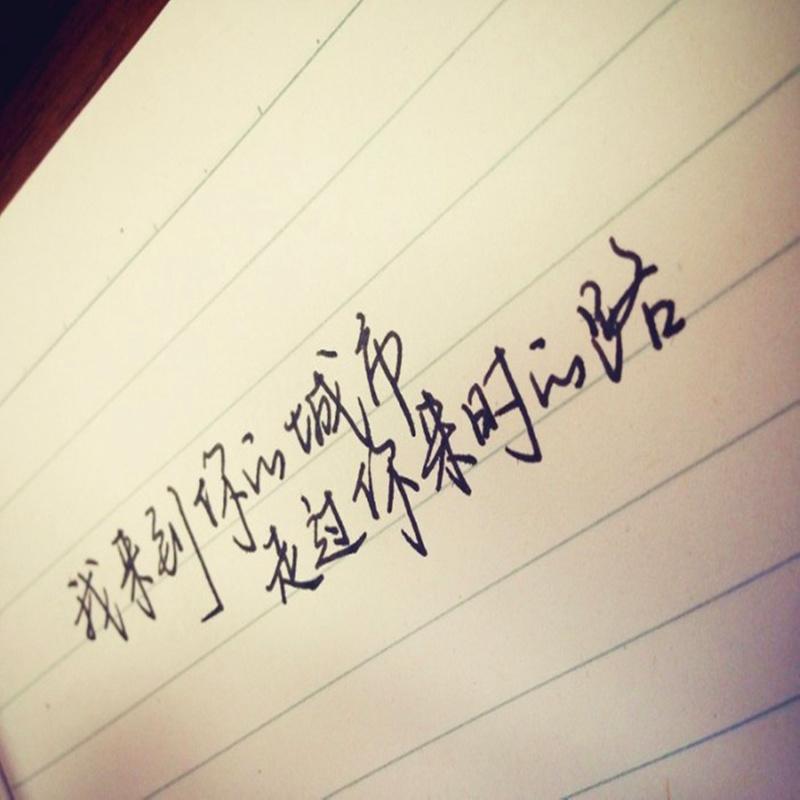 我来到你的城市
走过你来时的路